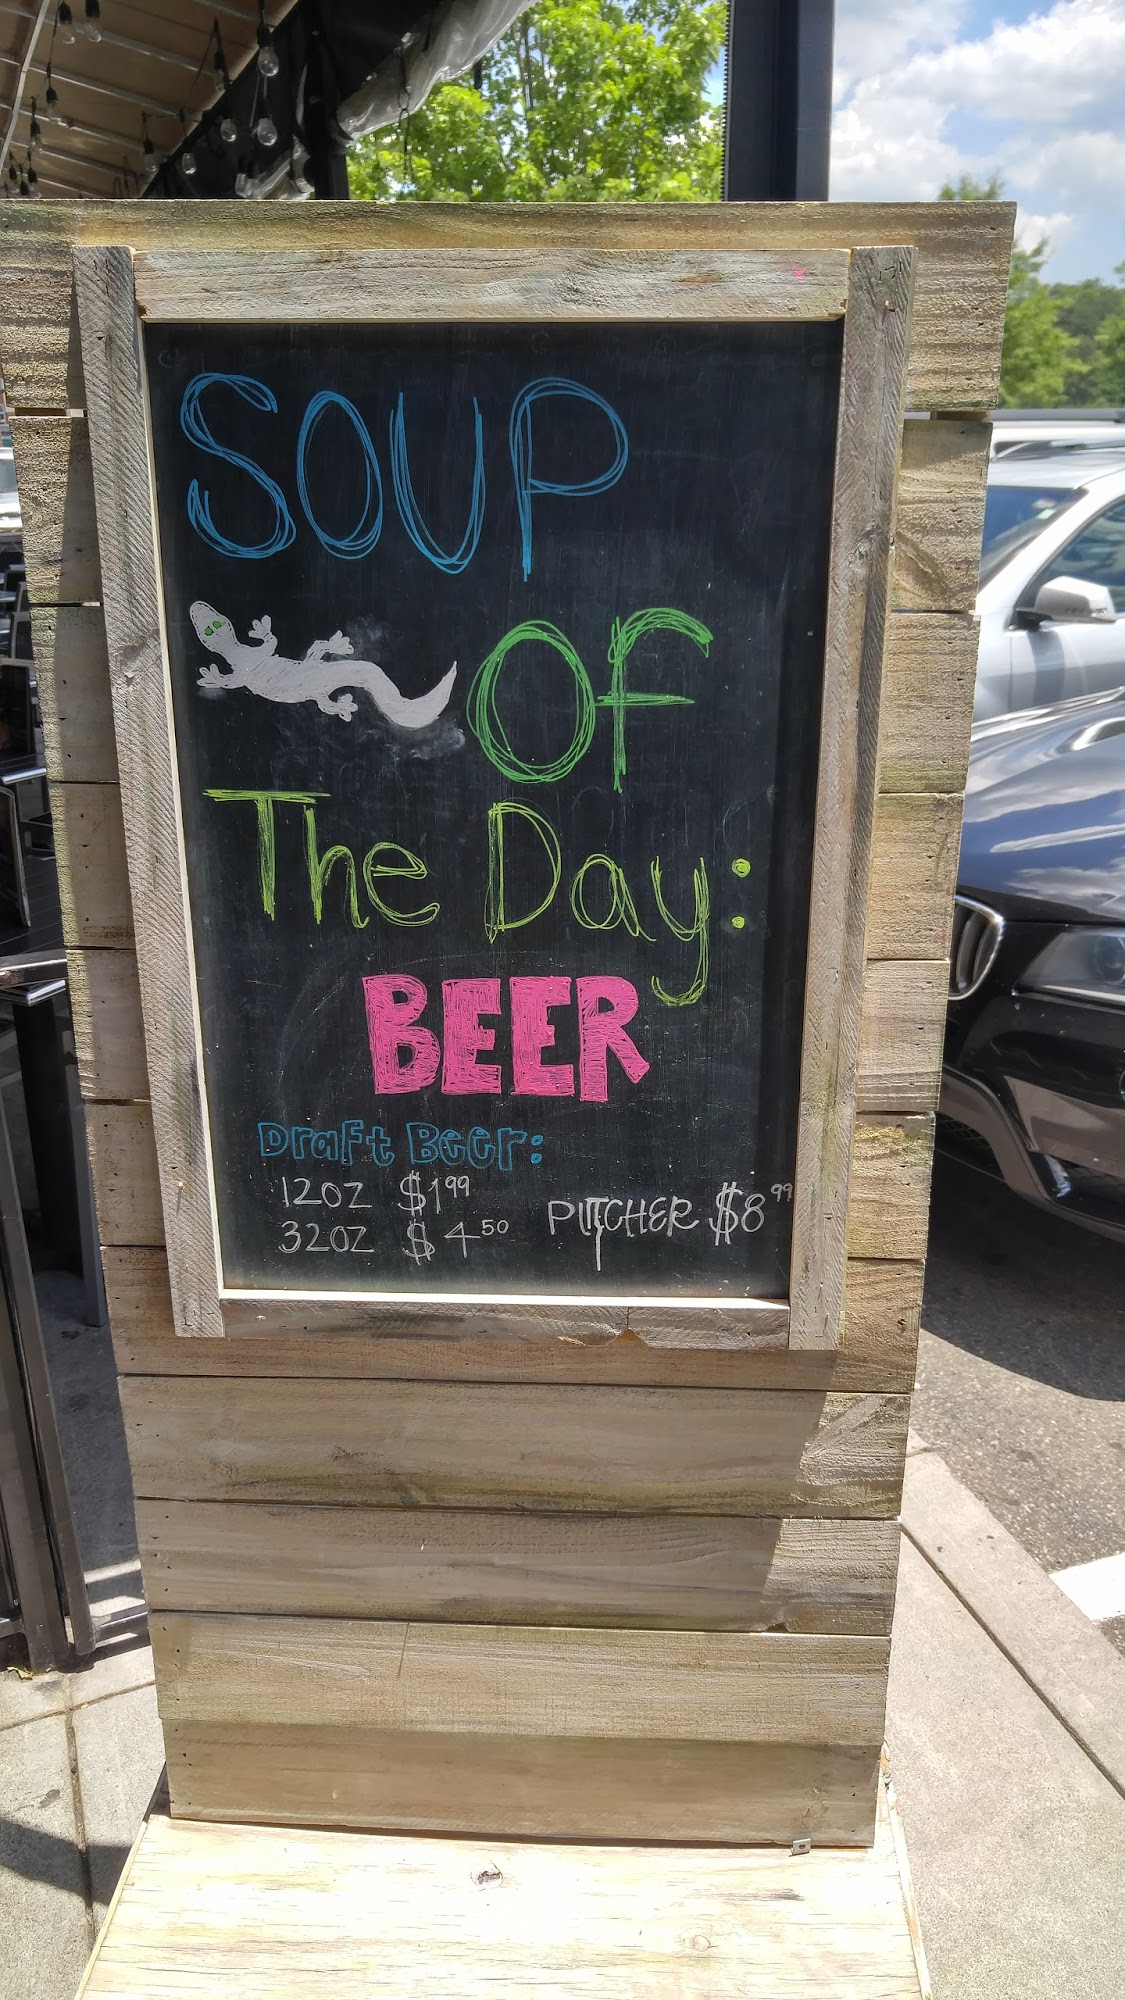 SOUP
OF
The Day:
BEER
Draft Beer:
12OZ $1.99
32OZ $4.50
PITCHER $8.99